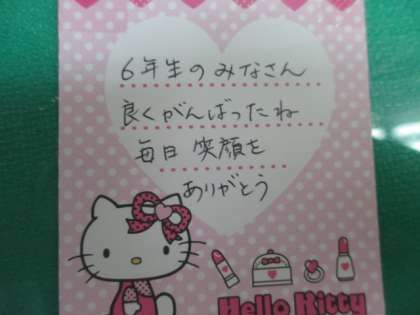 6年生のみなさん
良くがんばったね
毎日 笑顔を
ありがとう
Hello Kitty